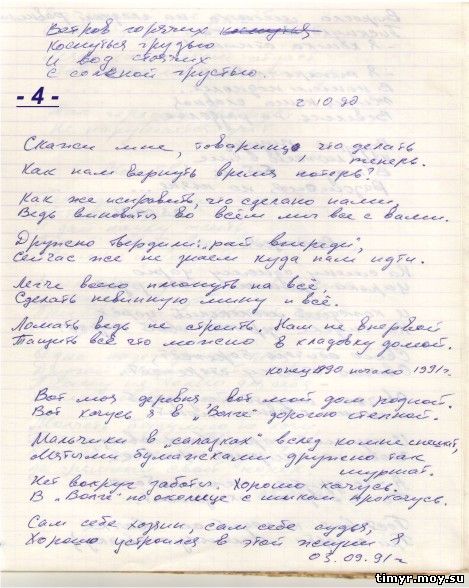 Ветров горячих коснуться
Коснуться грудью
И вод стоячих
С солёной грустью.
- 4 -
2.10.90
Скажи мне, товарищ, что делать
теперь.
Как нам вернуть время потерь?
Как же исправить, что сделано нами,
Ведь виноваты во всём мы все с вами.
Дружно твердили: „рай впереди",
Сейчас же не знаем куда нам идти.
Легче всего плюнуть на всё,
Сделать невинную мину и всё.
Ломать ведь не строить. Нам не впервой
Тащить всё что можно в кладовку домой.
конец 1990 начало 1991г.
Вот моя деревня, вот мой дом родной.
Вот качусь я в „Волге" дорогою степной.
Мальчики в „салазках" вслед за мной спешат,
Мятыми бумажками дружно так
шуршат.
Нет вокруг заботы. Хорошо качусь.
В „Волге" по околице с шиком прокачусь.
Сам себе хозяин, сам себе судья,
Хорошо устроился в этой жизни я
03.09.91г
timyr.moy.su